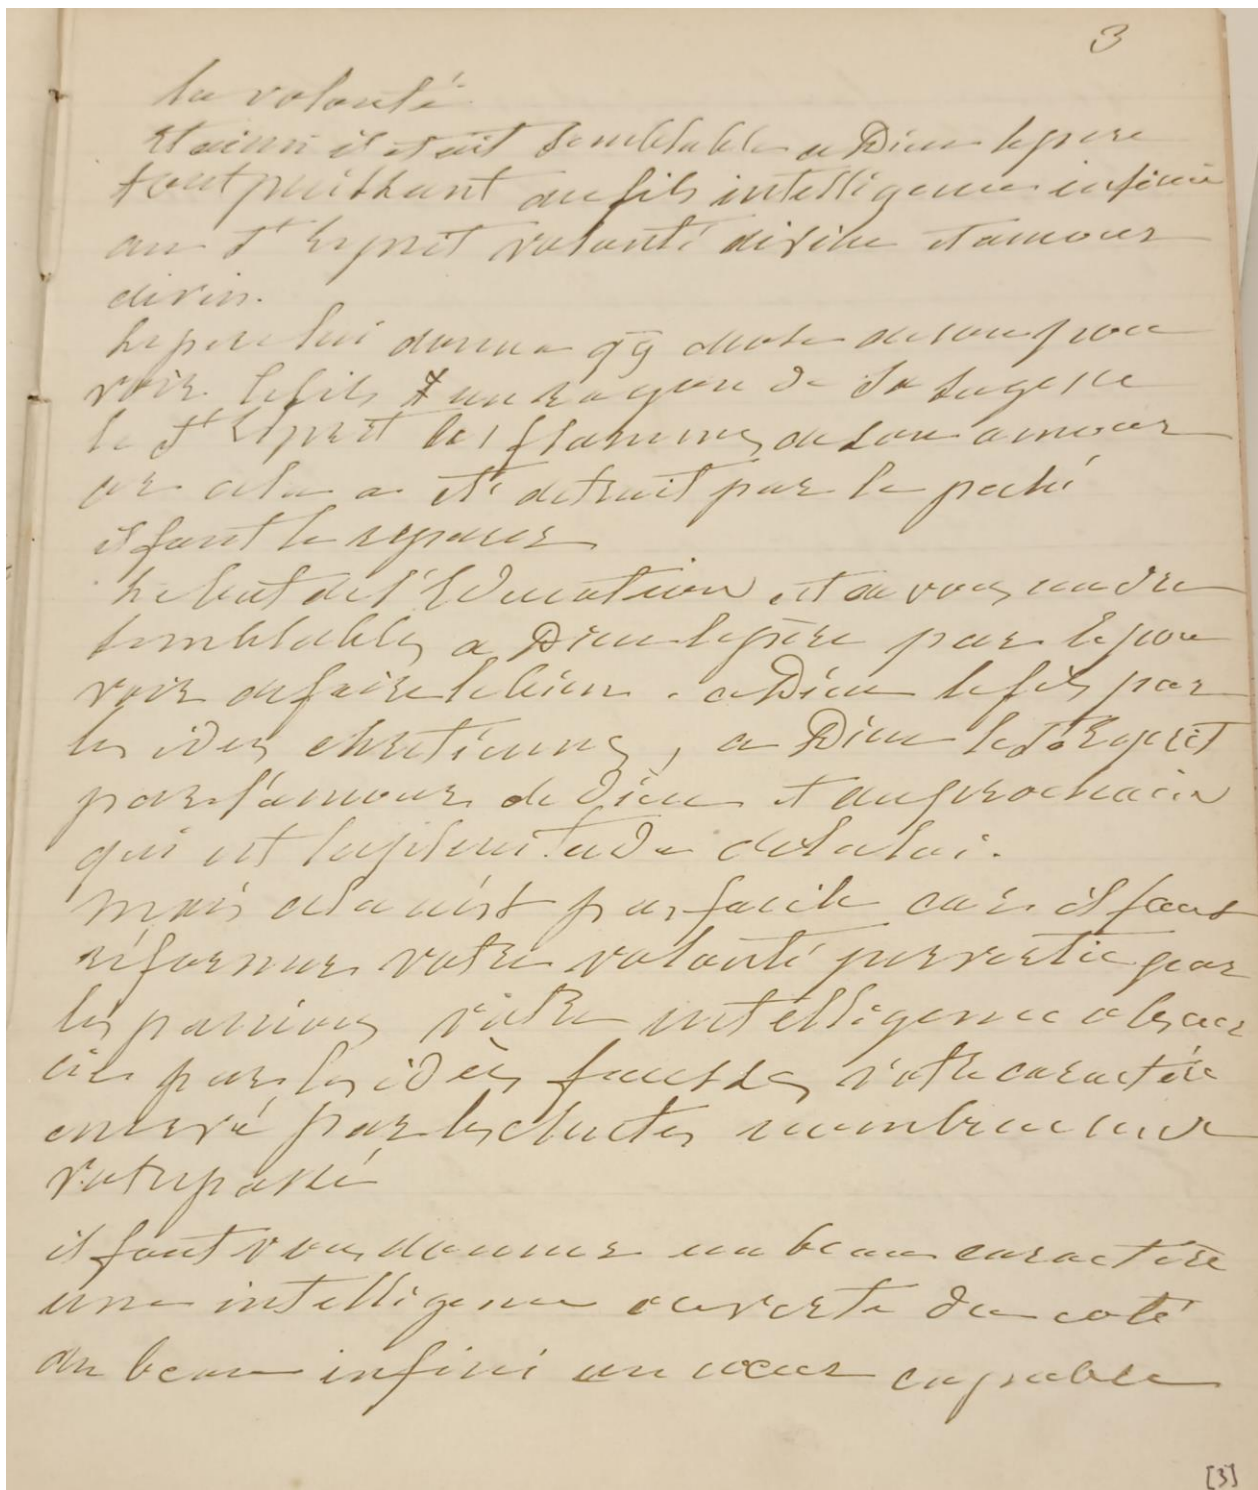 3
la volonté
Et ainsi il etait semblable a Dieu le pere
tout puissant au fils intelligence infinie
au St Esprit volonté divine et amour
divin.
Le pere lui donna qq chose de son pou
voir le fils un rayon de sa sagesse
le St Esprit les flammes de son amour
or cela a été detruit par le peché
il faut le reparer
Le but de l'Education est de vous rendre
semblables a Dieu le père par le pou
voir de faire le bien. a Dieu le fils par
les idees chretiennes, a Dieu le St Esprit
par l'amour de Dieu et du prochain
qui est la plenitude de la loi.
Mais cela n'est pas facile car il faut
réformer votre volonté pervertie par
les passions votre intelligence obscur
cie par les idées fausses votre caractére
enervé par les chutes nombreuses de
votre passé
il faut vous donner un beau caractère
une intelligence ouverte du coté
du beau infini un coeur capable
[3]